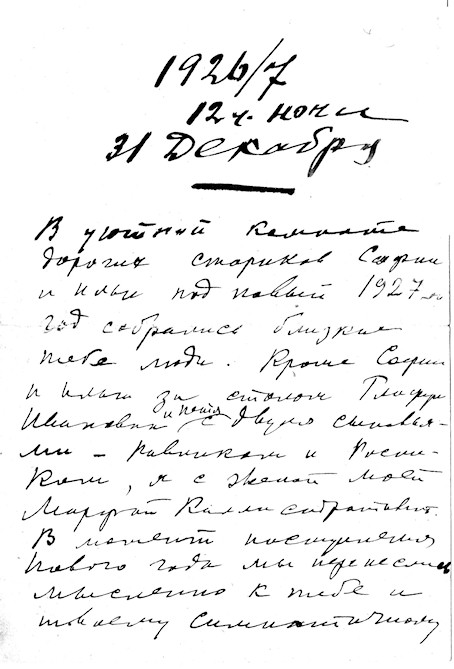 1926/7
12 ч. ночи
31 Декабря
В уютной комнате
дорогих стариков Софии
и Ильи под новый 1927-й
год собрались близкие
тебе люди. Кроме Софии
и Ильи за столом Глафира
Ивановна и Петя с двумя сыновья-
ми – Павликом и
, я с женой моей
Марфой Каллистратовной.
В момент наступления
Нового года мы перенеслись
мысленно к тебе и
твоему симпатичному